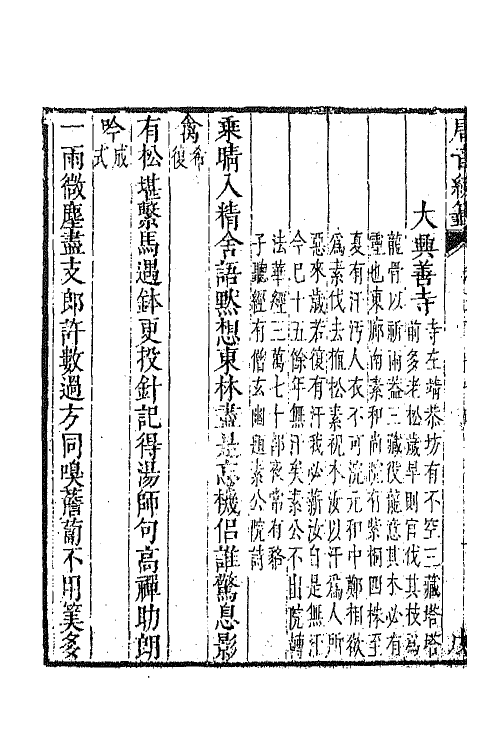 大興善寺
寺在靖恭坊有不空三藏塔塔
前多老松歲旱則官伐其枝爲
龍骨以祈雨葢三藏役龍意其木必有
靈也東廊南素和尚院有紫桐四株至
夏有汗汚人衣不可浣元和中鄭相欲
爲素伐去植松素祝木汝以汗爲人所
惡來歲若復有汗我必薪汝自是無汗
今已十五餘年無汗矣素公不出院轉
法華經三萬七十部夜常有貉
子聽經有僧玄幽題素公院詩
乘晴入精舍語默想東林盡是忘機侶誰驚息影
禽希復
有松堪繫馬遇鉢更投針記得湯師句高禪助朗
吟成式
一雨微塵盡支郎許數過方同嗅薝蔔不用算多